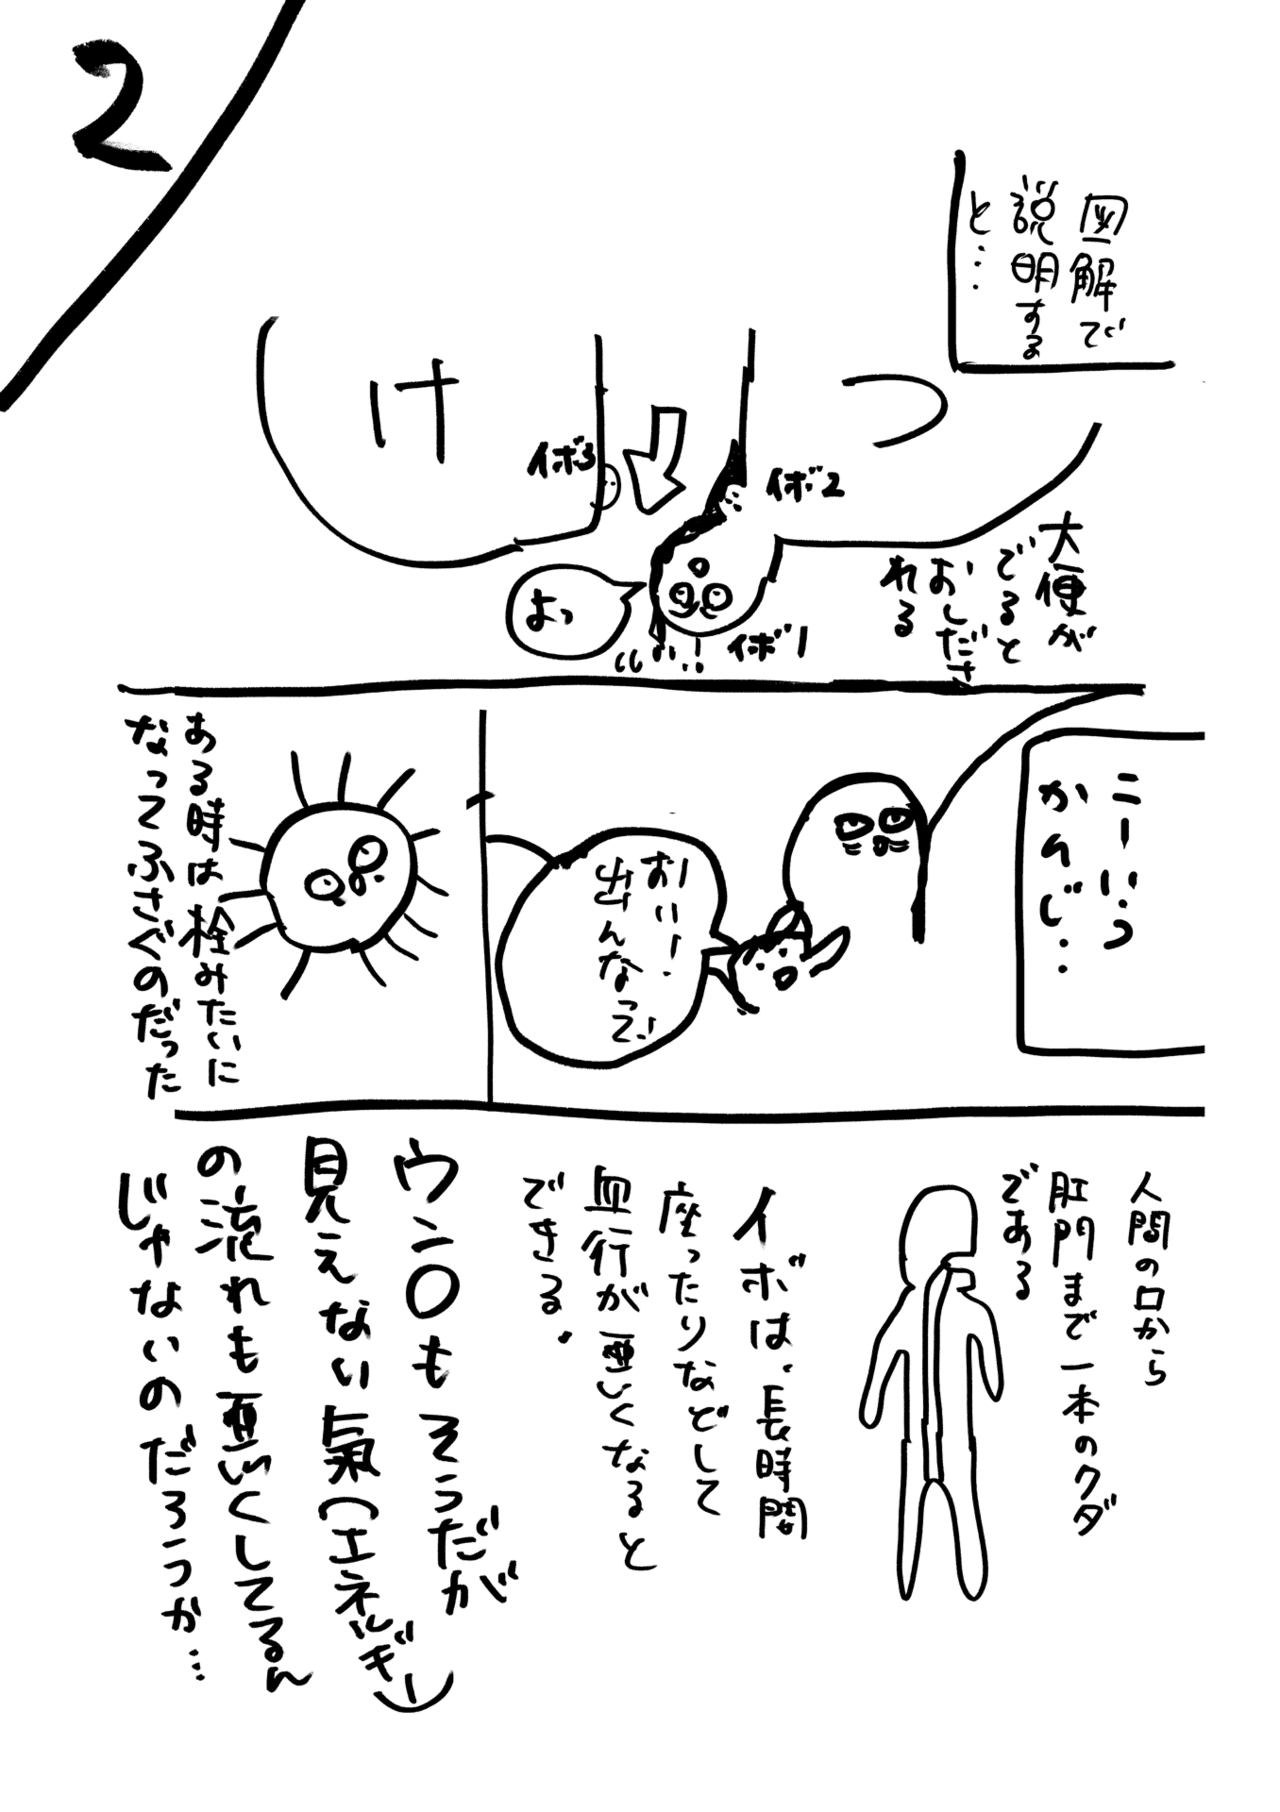 2
図解で
説明する
と…
けつ
イボ3
イボ2
イボ1
よっ
大便が
でると
おしださ
れる
こーいう
かんじ…
おい!
出んなって!
ある時は栓みたいに
なってふさぐのだった
人間の口から
肛門まで一本のクダ
である
イボは、長時間
座ったりなどして
血行が悪くなると
できる。
ウン〇もそうだが
見えない氣(エネルギー)
の流れも悪くしてるん
じゃないのだろうか…